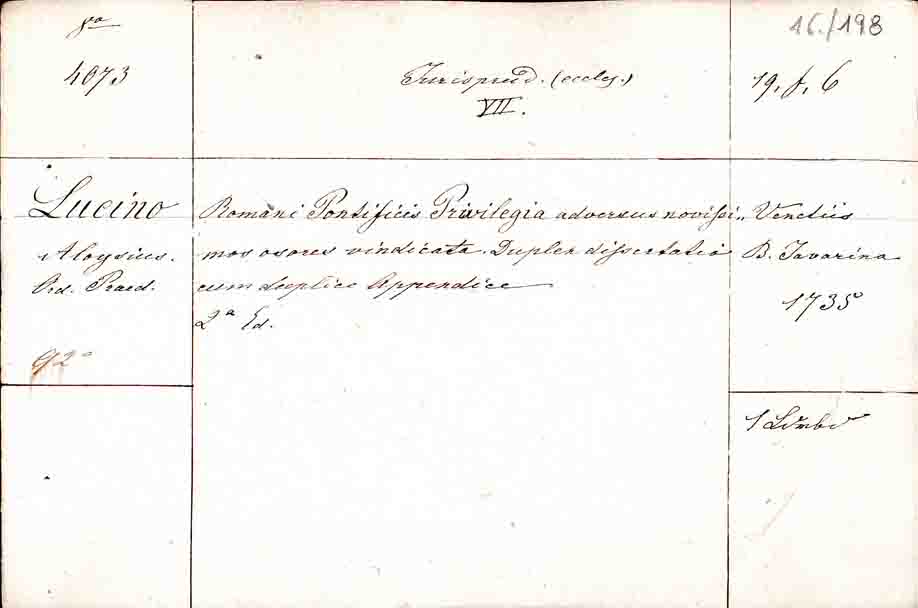 8º
4073
Jurisprud. (eccles.)
VII.
16./198
19, f, 6
Lucino
Aloysius.
Ord. Praed.
Romani Pontificis Privilegia adversus novissi„
mos osores vindicata. Duplex dissertatio
cum duplice Appendice
2ª Ed.
Venetiis
B. Tavarina
1735
1 Limbo